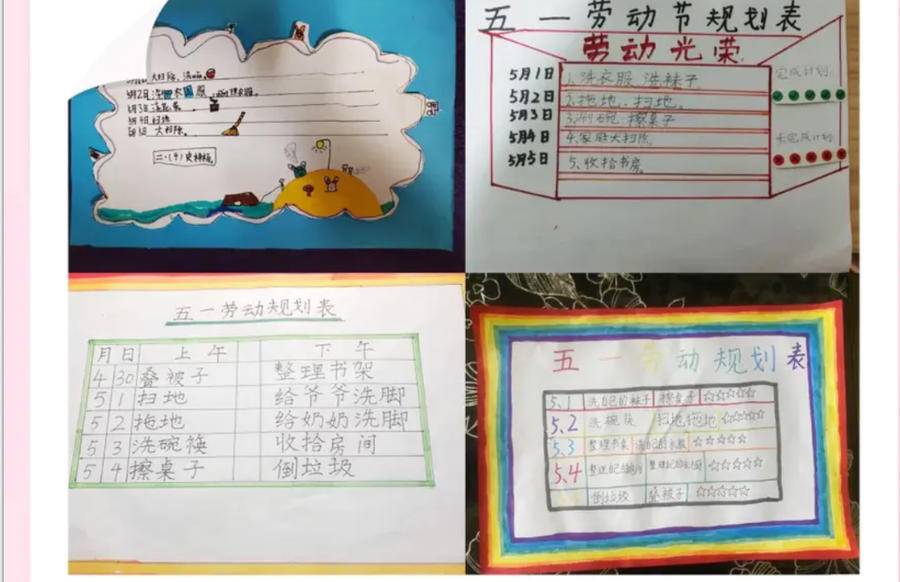 大扫除、洗碗。
5月2日
5月3日
5月4日 扫地
大扫除。
五一劳动节规划表
劳动光荣
5月1日 1、洗衣服 洗袜子
5月2日 2、拖地、扫地。
5月3日 3、刷碗、擦桌子
5月4日 4、家庭大扫除
5月5日 5、收拾书房。
完成计划:
未完成计划:
五一劳动规划表
月 日 上午 下午
4 30 叠被子 整理书架
5 1 扫地 给爷爷洗脚
5 2 拖地 给奶奶洗脚
5 3 洗碗筷 收拾房间
5 4 擦桌子 倒垃圾
五一劳动规划表
5.1 洗自己的袜子 擦桌子 ☆☆☆☆☆
5.2 洗碗筷 扫地拖地 ☆☆☆☆☆
5.3 整理书桌 ☆☆☆☆☆
5.4 ☆☆☆☆☆
倒垃圾 叠被子 ☆☆☆☆☆